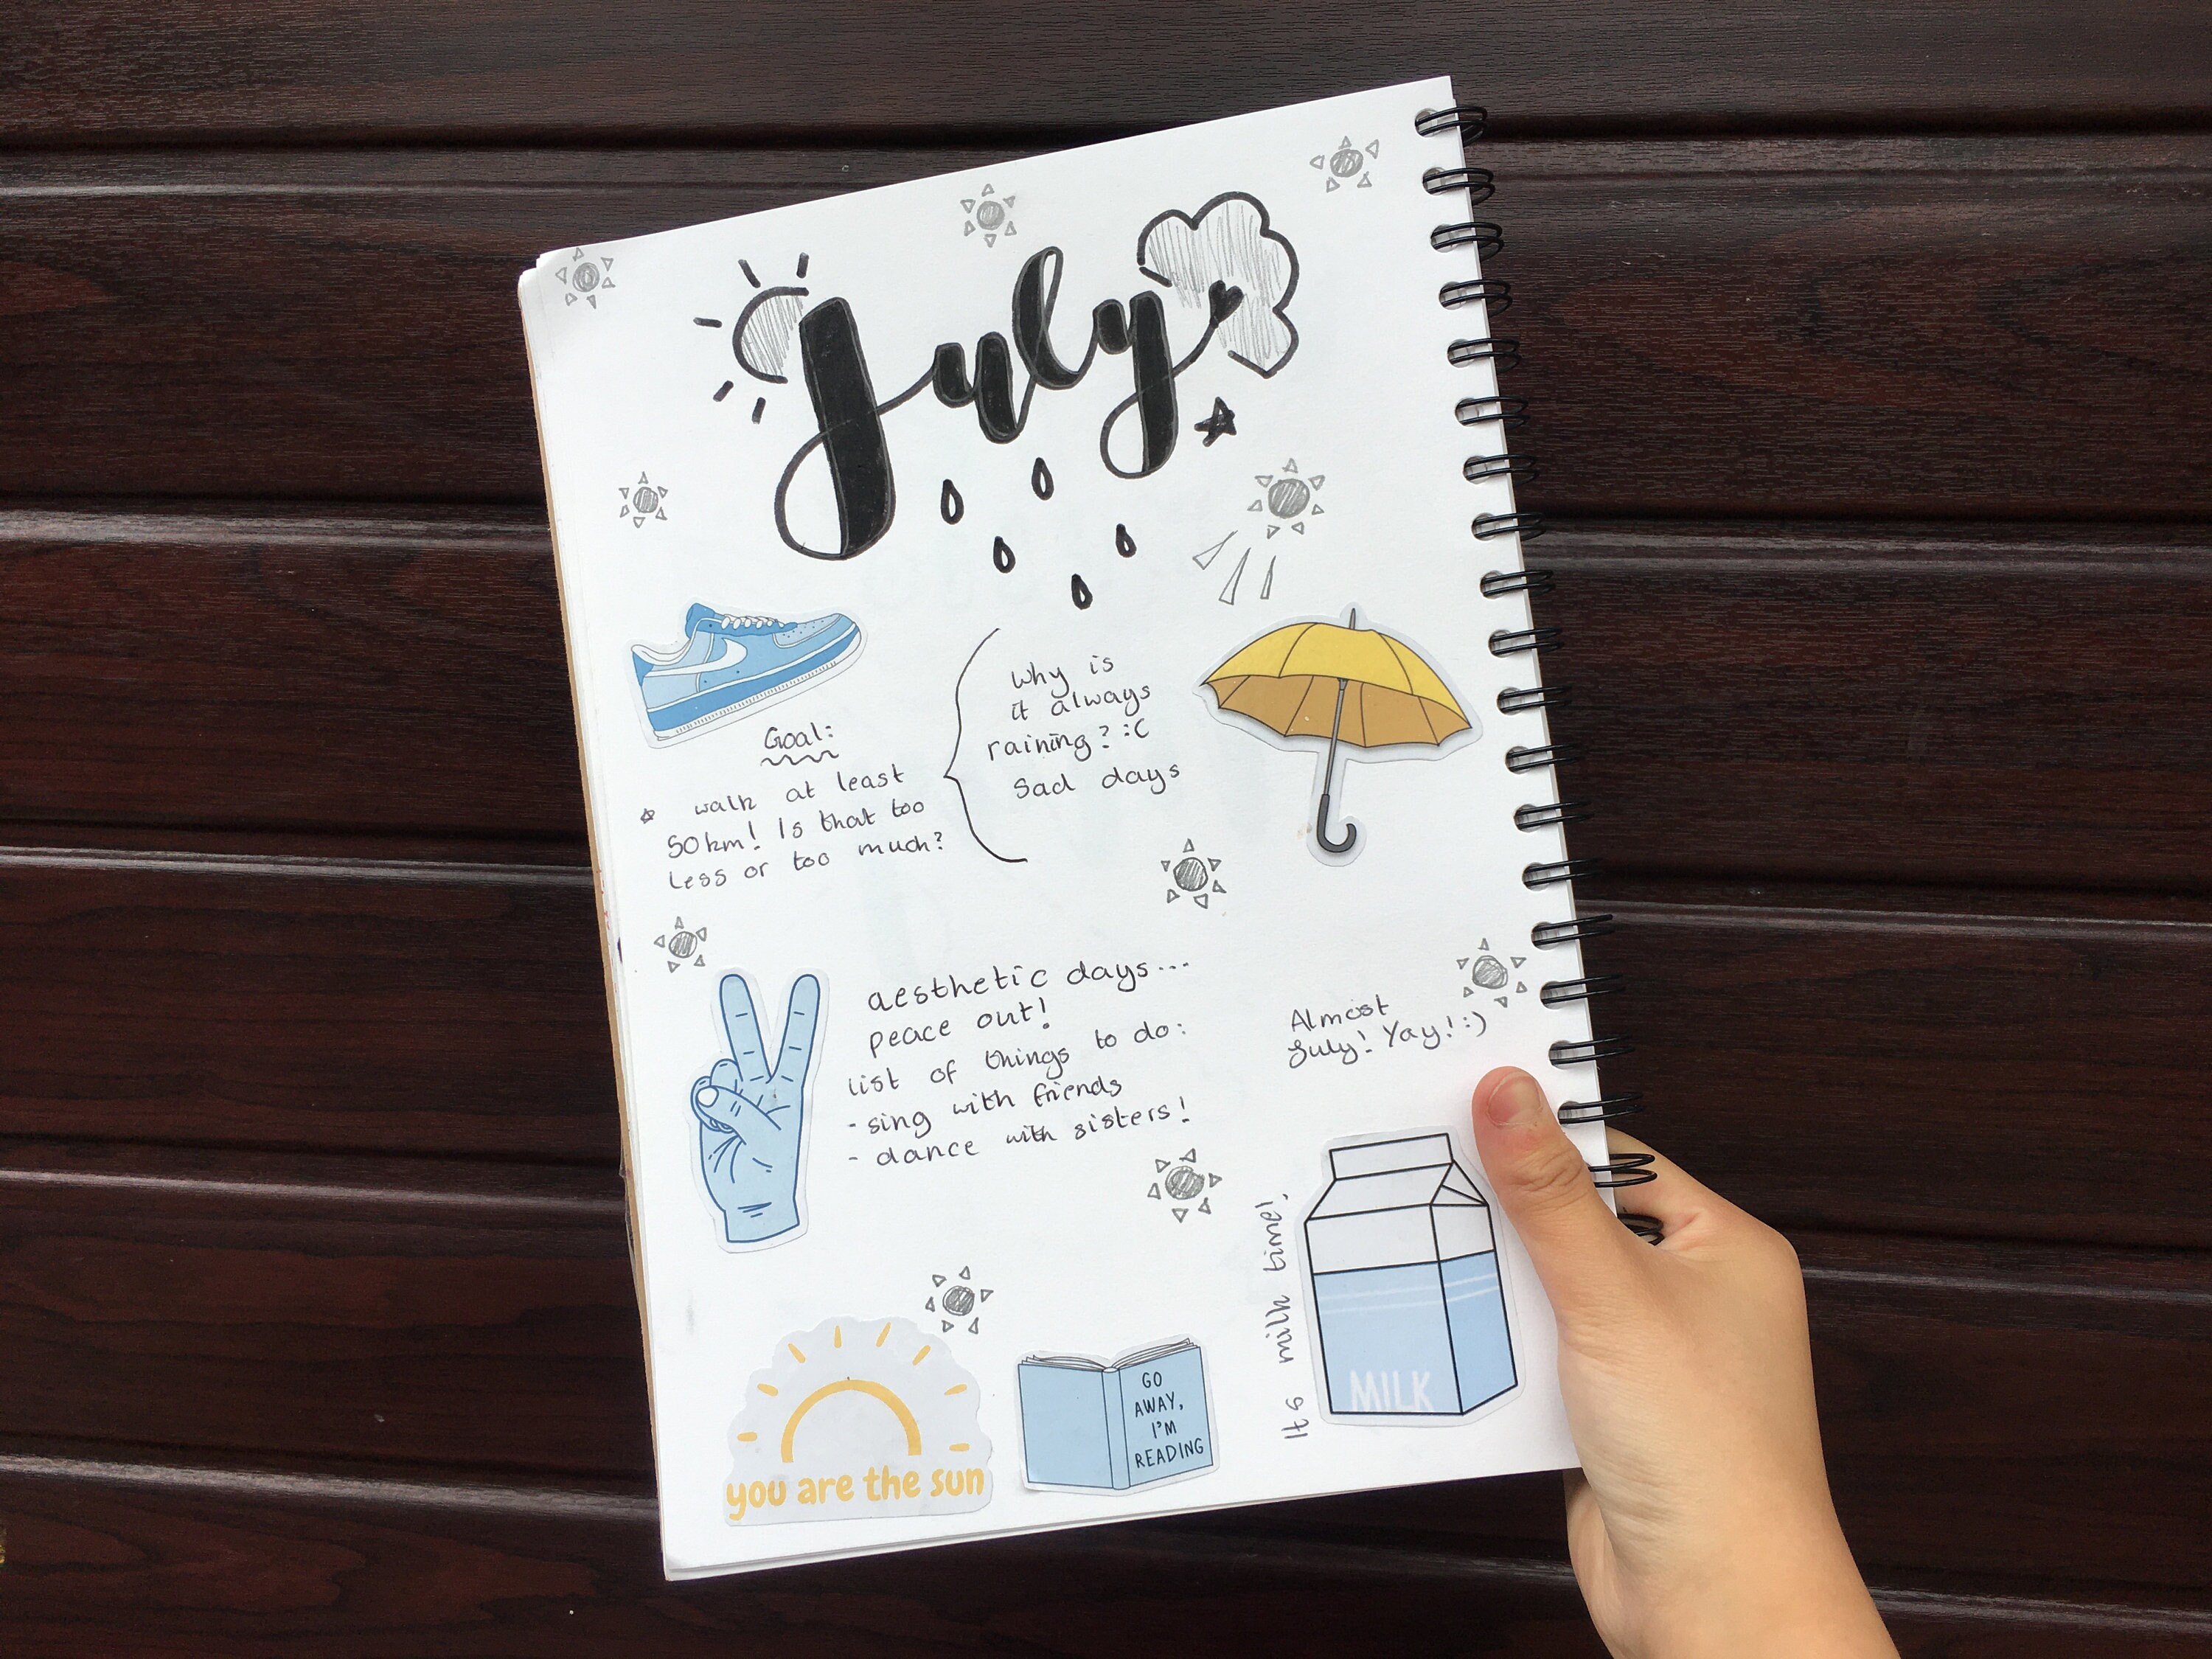 July
Goal:
walk at least
50km! Is that too
less or too much?
Why is
it always
raining? :C
Sad days
aesthetic days...
peace out!
list of things to do:
- sing with friends
- dance with sisters!
Almost
July! Yay! :)
It's milk time!,
MILK
you are the sun
GO
AWAY,
I'M
READING